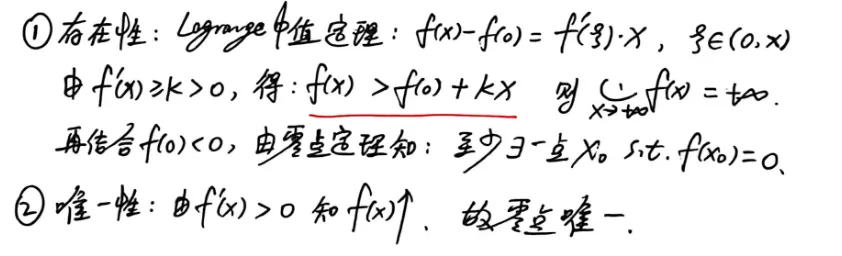 ① 存在性：Lagrange中值定理：f(x)-f(0)=f'(ξ)·x，ξ∈(0,x)
由f'(x)≥k>0，得：f(x)>f(0)+kx 则 lim x→+∞ f(x)=+∞.
再结合f(0)<0，由零点定理知：至少∃一点x₀ s.t. f(x₀)=0、
② 唯一性：由f'(x)>0 知f(x)↑. 故零点唯一.